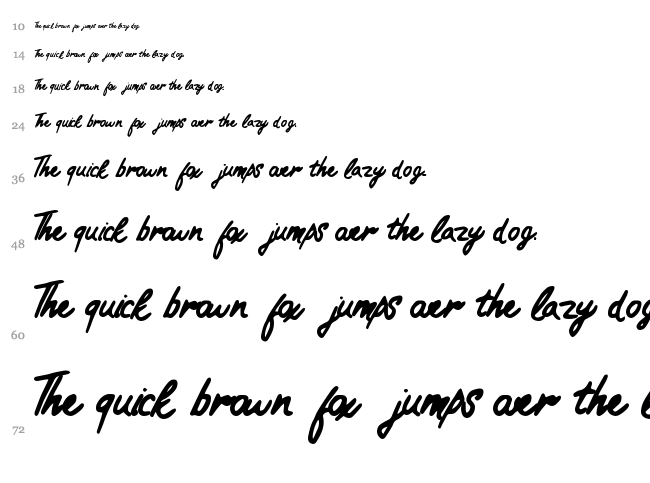 10 The quick brown fox jumps over the lazy dog.
14 The quick brown fox jumps over the lazy dog.
18 The quick brown fox jumps over the lazy dog.
24 The quick brown fox jumps over the lazy dog.
36 The quick brown fox jumps over the lazy dog.
48 The quick brown fox jumps over the lazy dog.
60 The quick brown fox jumps over the lazy dog
72 The quick brown fox jumps over the l